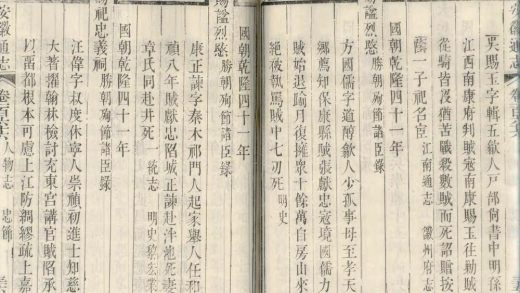 吳賜玉字輯五歙人戶部尚書中明孫
江西南康府判賊寇南康賜玉往勦賊
從騎皆沒猶苦戰殺數賊而死詔贈按
蔭一子祀名宦 江南通志 徽州府志
方國儒字道醇歙人少孤事母至孝天
鄉薦知保康縣賊張獻忠寇境國儒力
賊始退踰月復擁衆十餘萬自房山來
絶被執罵賊中七刃死 明史
國朝乾隆四十一年
賜諡烈愍 勝朝殉節諸臣錄
康正諫字泰木祁門人起家舉人任和
禎八年賊獻忠陷城正諫赴泮池死妻
章氏同赴井死 一統志 明史黎宏業
國朝乾隆四十一年
賜祀忠義祠 勝朝殉節諸臣錄
汪偉字叔度休寧人崇禎初進士知慈
大著擢翰林檢討充東宮講官賊陷承
以兩都根本可慮上江防綢繆疏上嘉
安徽通志 人物志 忠節